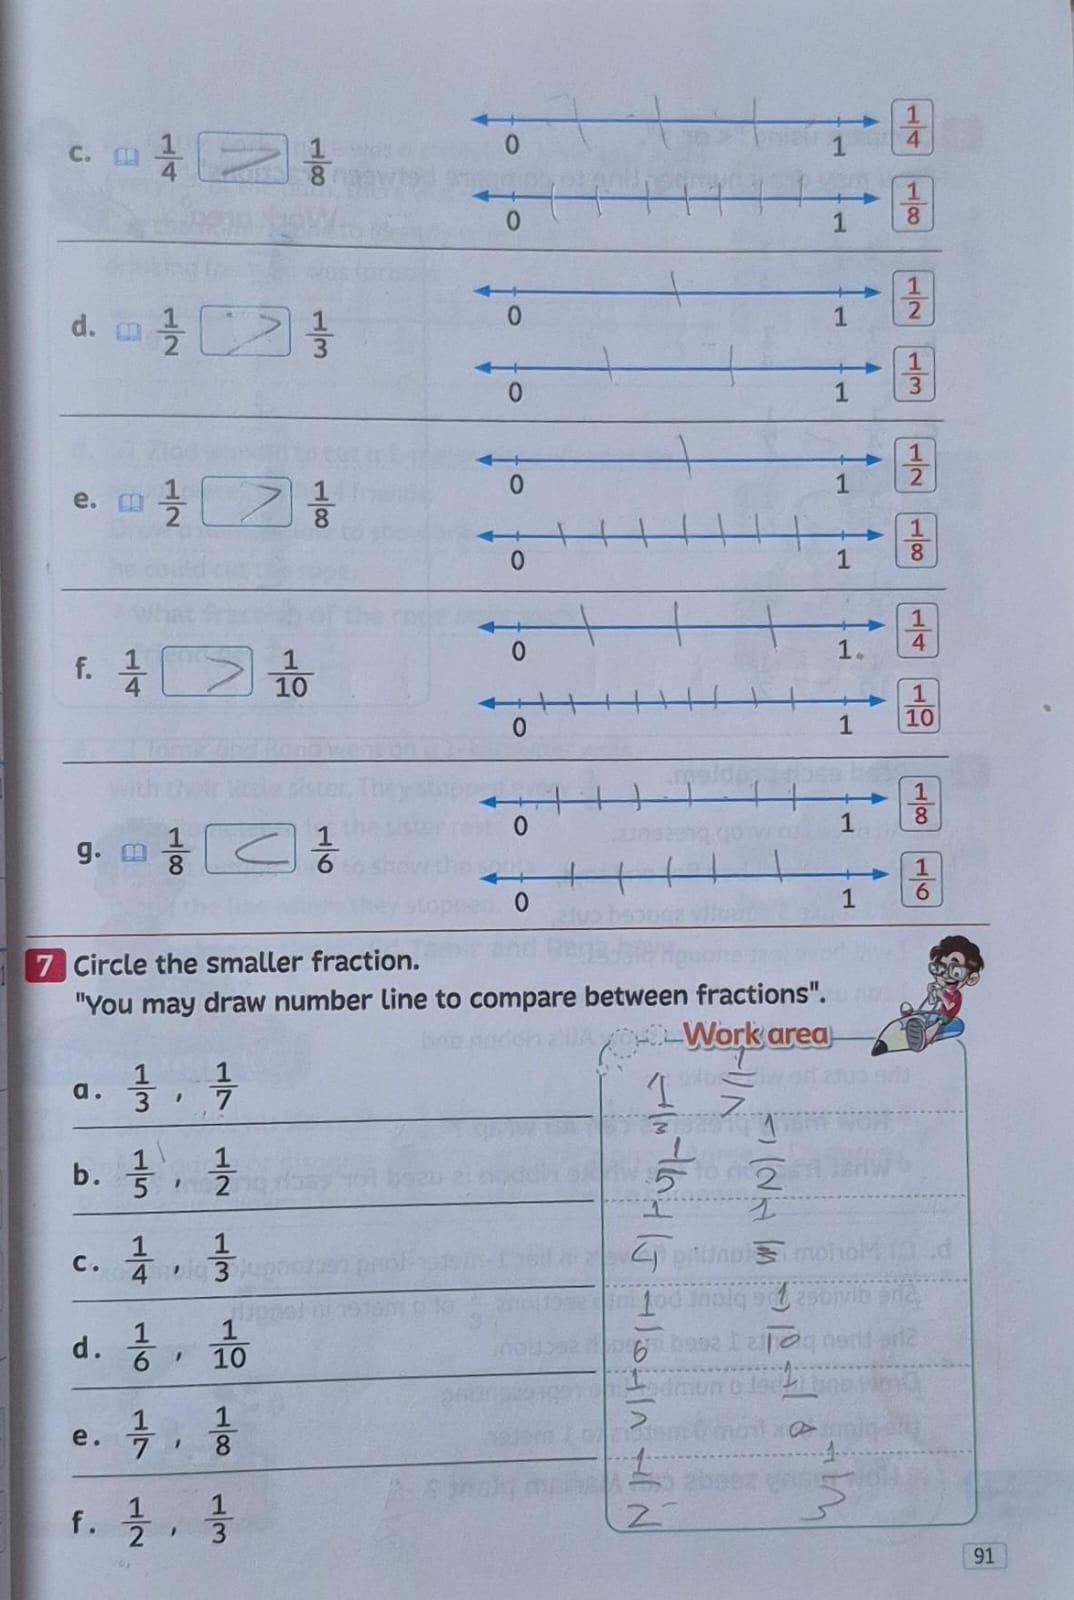 c. 1/4 > 1/8
0 1 1/4
0 1 1/8
d. 1/2 > 1/3
0 1 1/2
0 1 1/3
e. 1/2 > 1/8
0 1 1/2
0 1 1/8
f. 1/4 > 1/10
0 1 1/4
0 1 1/10
g. 1/8 < 1/6
0 1 1/8
0 1 1/6
7 Circle the smaller fraction.
"You may draw number line to compare between fractions".
Work area
a. 1/3 , 1/7
1/3 1/7
b. 1/5 , 1/2
1/5 1/2
c. 1/4 , 1/3
1/4 1/3
d. 1/6 , 1/10
1/6 1/10
e. 1/7 , 1/8
1/7
f. 1/2 , 1/3
1/2 1/3
91